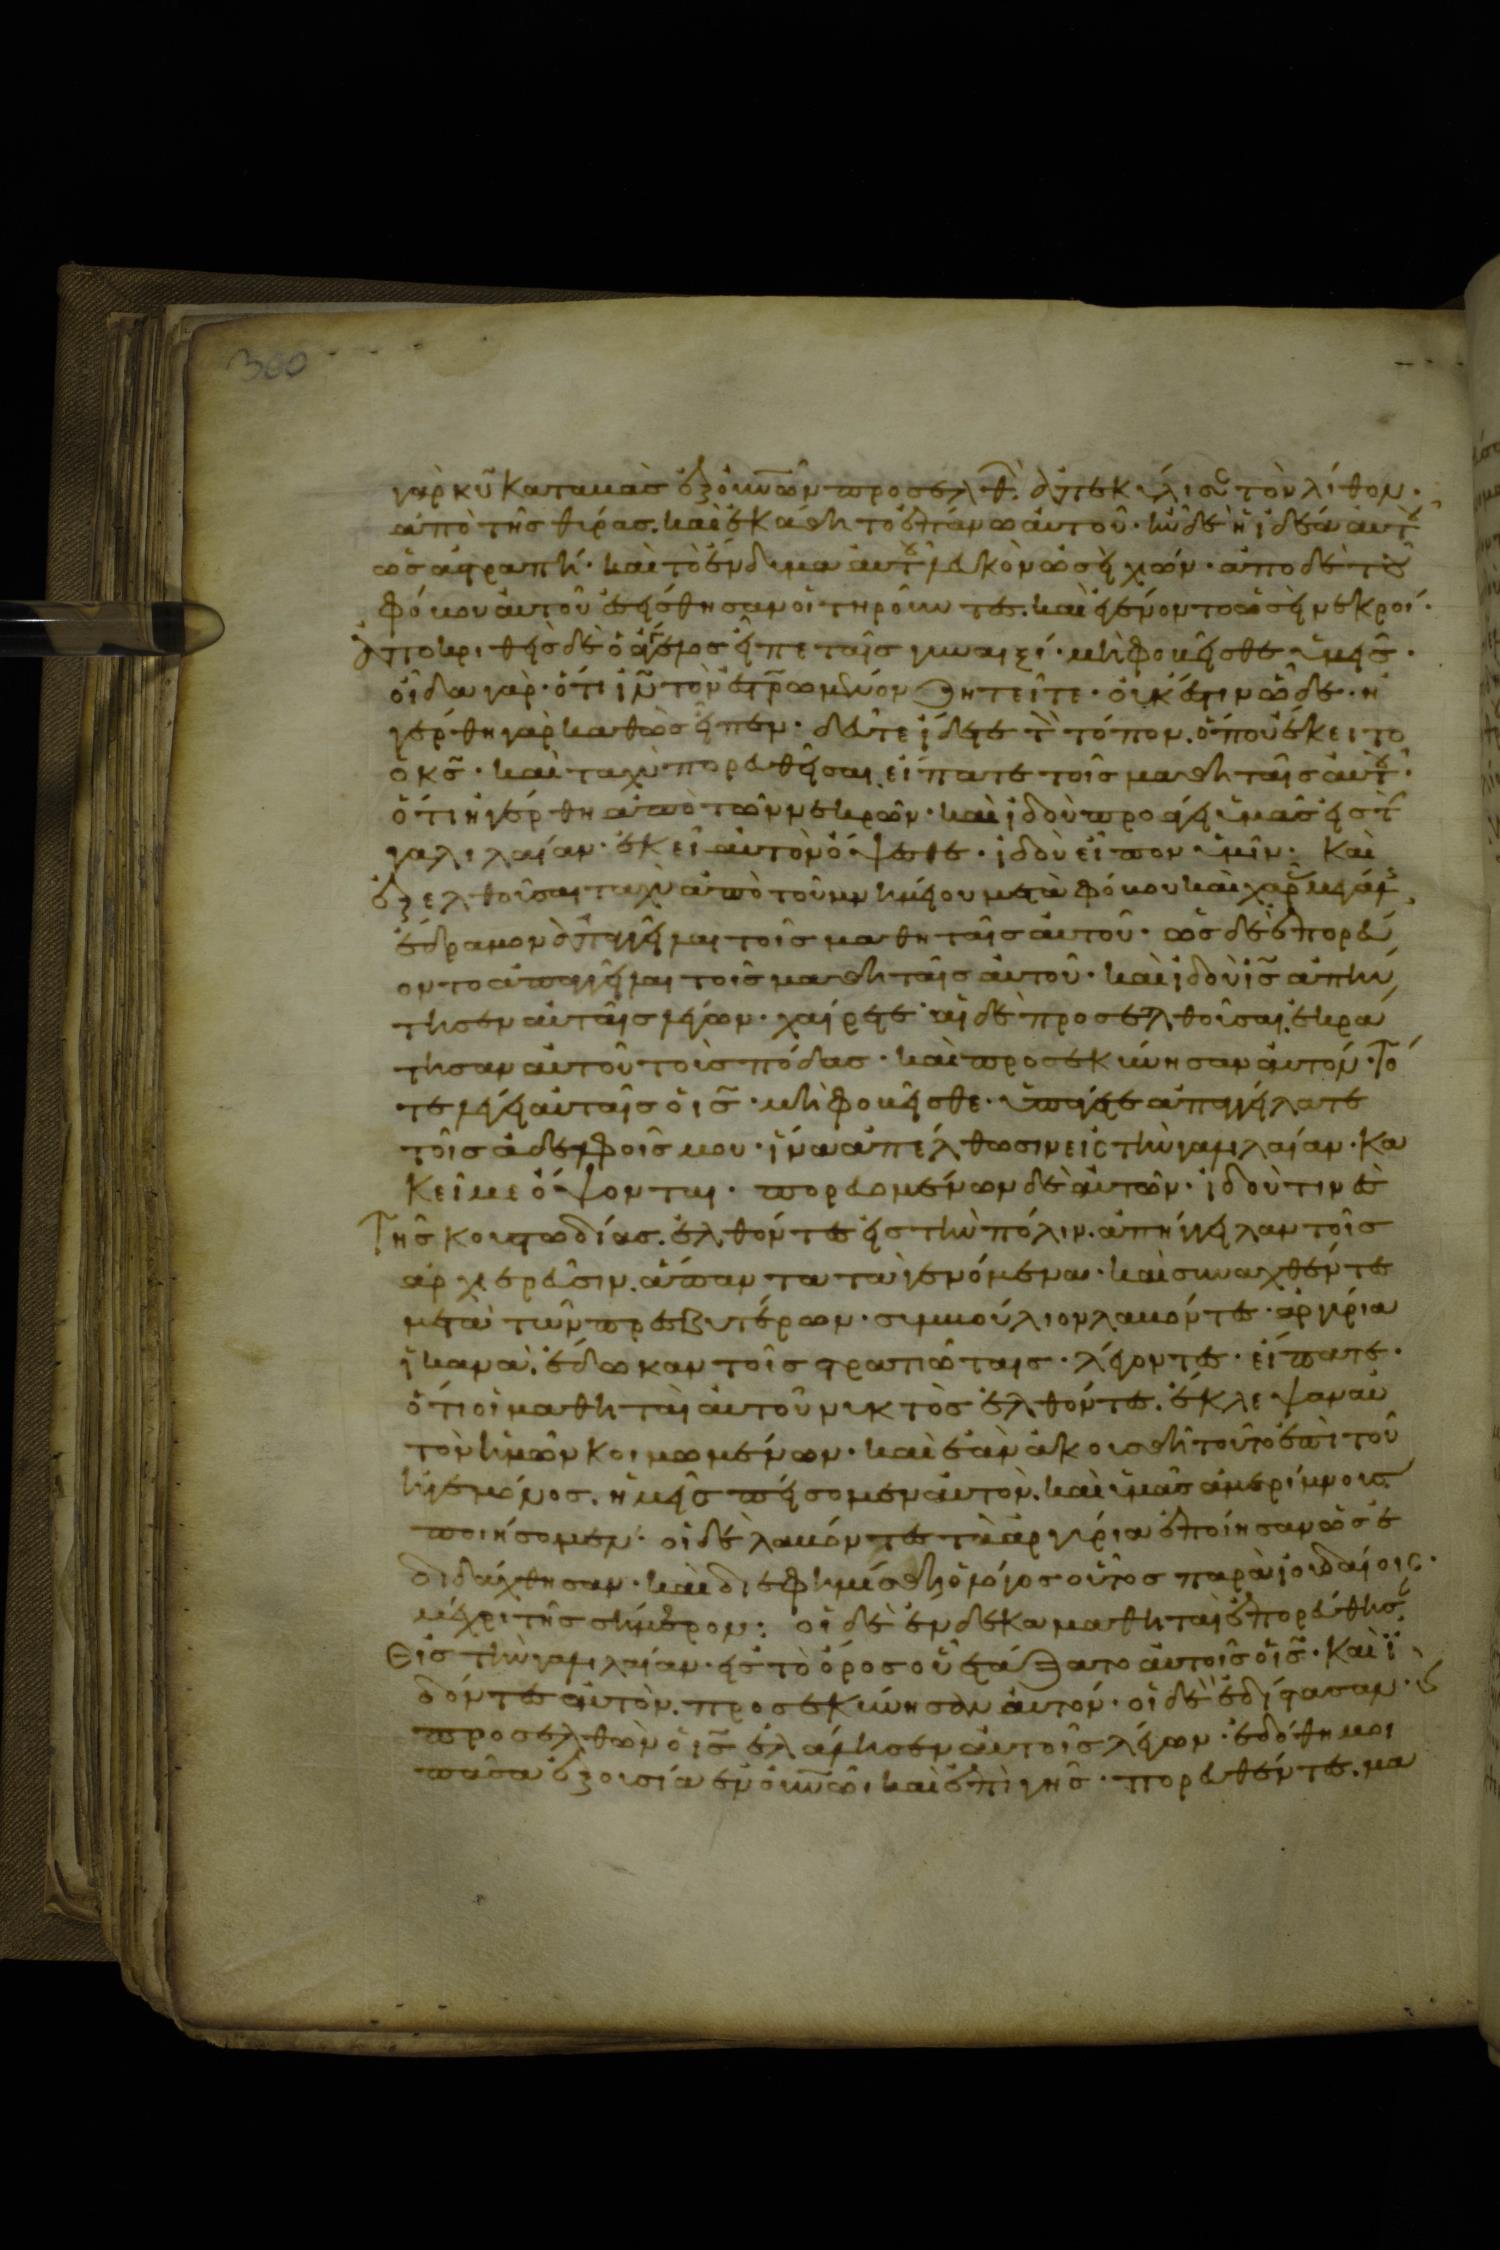 300
γὰρ κῡ καταβὰς ἐξ οὐνῶν προσελθ. ἀπεκύλισε τὸν λίθον·
ἀπὸ τῆς θύρας. καὶ ἐκάθητο ἐπάνω αὐτοῦ· ἦν δὲ ἡ ἰδέα αὐτ
ὡς ἀστραπή· καὶ τὸ ἔνδυμα αὐτοῦ λευκὸν ὡσεὶ χιών· ἀπο δὲ τοῦ
φόβου αὐτοῦ ἐσείσθησαν οἱ τηροῦντες. καὶ ἐγένοντο ὡσεὶ νεκροί·
ἀποκριθεὶς δὲ ὁ ἄγγελος εἶπε ταῖς γυναιξί· μὴ φοβεῖσθε ὑμεῖς·
οἶδα γὰρ· ὅτι ἰν̄ τὸν ἐστρωμένον ζητεῖτε· οὐκ ἔστιν ὧδε· ἠ
γέρθη γὰρ καθὼς εἶπεν· δεῦτε ἴδετε τὸν τόπον. ὅπου ἔκειτο
ο κς̄· καὶ ταχὺ πορευθεῖσαι εἴπατε τοῖς μαθηταῖς αὐτοῦ·
ὅτι ἠγέρθη ἀπὸ τῶν νεκρῶν· καὶ ἰδοὺ προάγει ὑμᾶς εἰς τ
γαλιλαίαν· ἐκεῖ αὐτὸν ὄψεσθε· ἰδοὺ εἶπον ὑμῖν· Καὶ
ἐξελθοῦσαι ταχὺ ἀπὸ τοῦ μνημείου μετὰ φόβου καὶ χαρ μεγάλ
ἔδραμον ἀπαγγεῖλαι τοῖς μαθηταῖς αὐτοῦ· ὡς δὲ ἐπορεύ
οντο ἀπαγγεῖλαι τοῖς μαθηταῖς αὐτοῦ· καὶ ἰδοὺ ις̄ ἀπήν
τησεν αὐταῖς λέγων· χαίρετε· αἱ δὲ προσελθοῦσαι ἐκρά
τησαν αὐτοῦ τοὺς πόδας· καὶ προσεκύνησαν αὐτόν· Τό
τε λέγει αὐταῖς ὁ ις̄· μὴ φοβεῖσθε· ὑπάγετε ἀπαγγείλατε
τοῖς ἀδελφοῖς μου· ἵνα ἀπέλθωσιν εἰς τὴν γαλιλαίαν· Κα
κεῖ με ὄψονται· πορευομένων δὲ αὐτῶν· ἰδού τινες
Τῆς κουστωδίας. ἐλθόντες εἰς τὴν πόλιν. ἀπήγγειλαν τοῖς
ἀρχιερεῦσιν. ἅπαντα τὰ γενόμενα· καὶ συναχθέντες
μετὰ τῶν πρεσβυτέρων· συμβούλιον λαβόντες· ἀργύρια
ἱκανὰ. ἔδωκαν τοῖς στρατιώταις· λέγοντες· εἴπατε·
ὅτι οἱ μαθηταὶ αὐτοῦ νυκτὸς ἐλθόντες. ἔκλεψαν αὐ
τὸν ἡμῶν κοιμωμένων· καὶ ἐὰν ἀκουσθῇ τοῦτο ἐπὶ τοῦ
ἡγεμόνος. ἡμεῖς πείσομεν αὐτὸν. καὶ ὑμᾶς ἀμερίμνους
ποιήσομεν· οἱ δὲ λαβόντες τὰ ἀργύρια ἐποίησαν ὡς ἐ
διδάχθησαν· καὶ διεφημίσθη ὁ λόγος οὗτος παρὰ ἰουδαίοις·
μέχρι τῆς σήμερον: οἱ δὲ ἕνδεκα μαθηταὶ ἐπορεύθησ
Εἰς τὴν γαλιλαίαν· εἰς τὸ ὄρος οὗ ἐτάξατο αὐτοῖς ὁ ις̄· Καὶ ἰ
δόντες αὐτὸν. προσεκύνησαν αὐτόν· οἱ δὲ ἐδίστασαν· ϗ
προσελθὼν ὁ ις̄ ἐλάλησεν αὐτοῖς λέγων· ἐδόθη μοι
πᾶσα ἐξουσία ἐν οὐνῶι καὶ ἐπὶ γῆς· πορευθέντες. μα